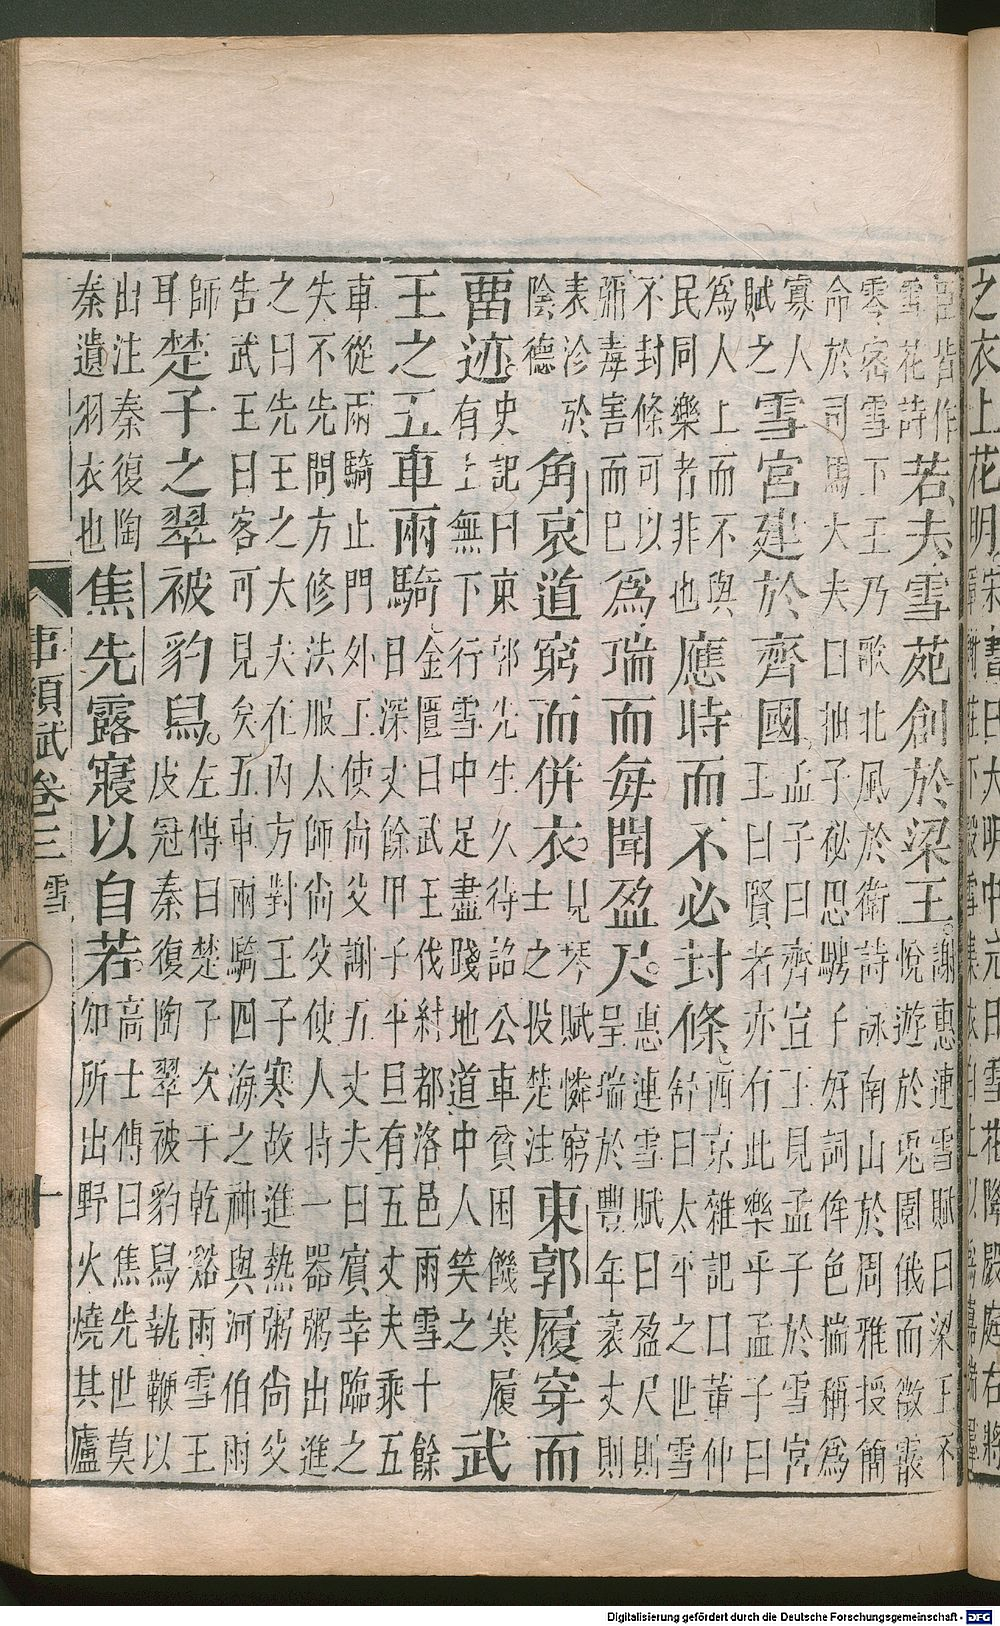 之衣上花明宋書曰大明中元日雪花降殿庭右將
軍謝莊下殿雪集衣白上以爲嘉瑞
宮皆作
雪花詩
若夫雪苑創於梁王。
謝惠連雪賦曰梁王不
悅遊於兎園俄而微霰
零密雪下王乃歌北風於衛詩詠南山於周雅授簡
命於司馬大夫曰抽子秘思騁子好詞侔色揣稱爲
寡人
賦之
雪宮建於齊國。
孟子曰齊宣王見孟子於雪宮
王曰賢者亦有此樂乎孟子曰
爲人上而不與
民同樂者非也
應時而不必封條。
西京雜記曰董仲
舒曰太平之世雪
不封條可以
彌毒害而已
爲瑞而每聞盈尺。
惠連雪賦曰盈尺則
呈瑞於豐年袤丈則
表沴於
陰德
角哀道窮而併衣。
見琴賦憐窮
士之投楚注
東郭履穿而
畱迹。
史記曰東郭先生久待詔公車貧困饑寒履
有上無下行雪中足盡踐地道中人笑之
武
王之五車兩騎
金匱曰武王伐紂都洛邑雨雪十餘
日深丈餘甲子平旦有五丈夫乘五
車從兩騎止門外王使尚父謝五丈夫曰賓幸臨之
失不先問方修法服太師尚父使人持一器粥出進
之曰先王之大夫在內方對王子寒故進熱粥尚父
告武王曰客可見矣五車兩騎四海之神與河伯雨
師
耳
楚子之翠被豹舄。
左傳曰楚子次于乾谿雨雪王
皮冠秦復陶翠被豹舄執鞭以
出注秦復陶
秦遺羽衣也
焦先露寢以自若。
高士傳曰焦先世莫
知所出野火燒其廬
事類賦卷三 雪 十
Digitalisierung gefördert durch die Deutsche Forschungsgemeinschaft - DFG